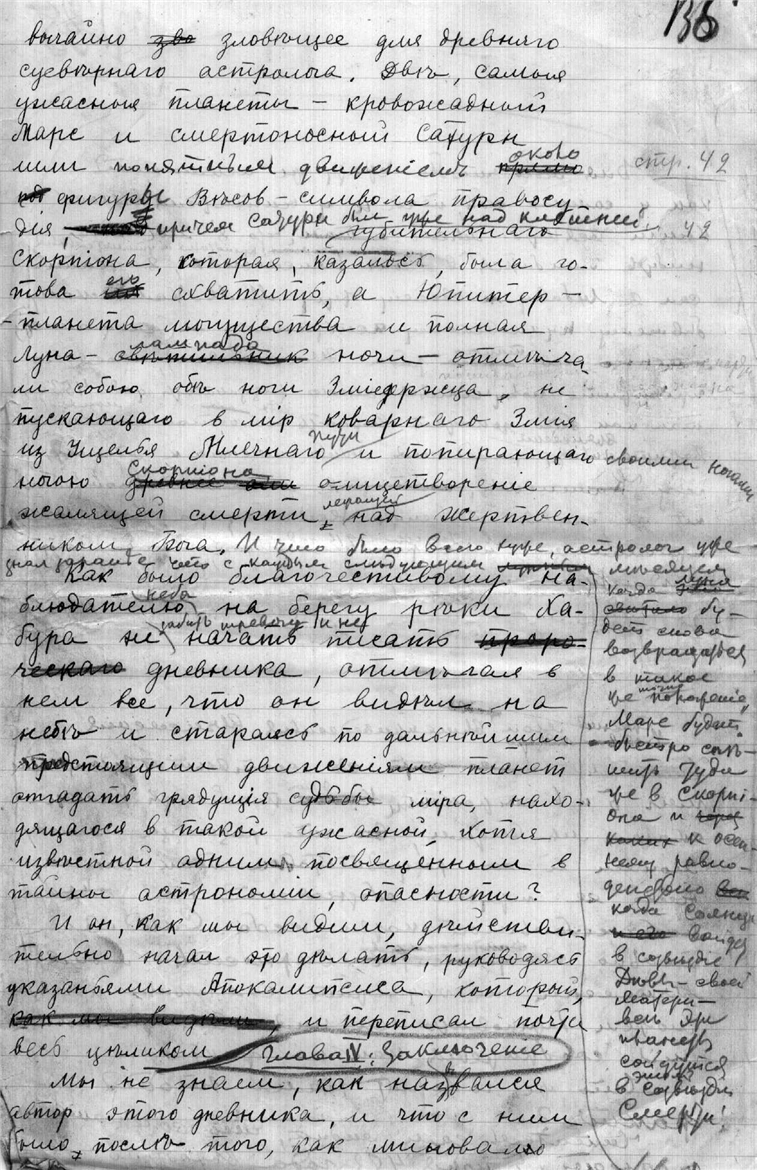 136
вычайно зло зловѣющее для древняго
суевѣрнаго астролога. Двѣ, самыя
ужасныя планеты – кровожадный
Марс и смертоносный Сатурн
шли попятным движеніемъ около
стр. 42
фигуры Вѣсов – символа правосу-
дія, причем Сатурн был уже над клешней
губительнаго 42
Скорпіона, которая, казалось, была го-
това его схватить, а Юпитер –
– планета могущества и полная
Луна – лампада свѣтильник ночи – отмѣча-
ли собою обѣ ноги Зміедержца, не
пускающаго в мір коварнаго Змія
из Ущелья Млечнаго пути и попирающаго своими ногами
ногою Скорпіона древнее олицетвореніе
жалящей смерти, над жертвен-
ником Бога. И что было всего хуже, астролог уже
знал заранѣе, что с каждым слѣдующим мѣсяцем
Как было благочестивому на-
блюдателю неба на берегу рѣки Ха-
бура не забить тревогу и не начать писать проро-
ческаго дневника, отмѣчая в
нем все, что он видѣл на
небѣ и стараясь по дальнѣйшим
предстоящим движеніям планет
отгадать грядущія судьбы міра, нахо-
дящагося в такой ужасной, хотя
извѣстной одним посвященным в
тайны астрономіи, опасности?
И он, как мы видим, дѣйстви-
тельно начал это дѣлать, руководясь
указаньями Апокалипсиса, который,
как мы видѣли, и переписал почти
весь цѣликом Глава IV: Заключеніе
Мы не знаем, как назывался
автор этого дневника, и что с ним
было, послѣ того, как миновало
когда луна
бу-
дет снова
возвращаться
в такое
же положеніе,
Марс будет
быстро спѣ-
шить туда
же в Скорпі-
она и
к осен-
нему равно-
денствію
когда Солнце
войдет
в созвѣздіе
Дѣвы – своей
матери –
всѣ эти
планеты
сойдутся
в этом созвѣздіи
Смерти!